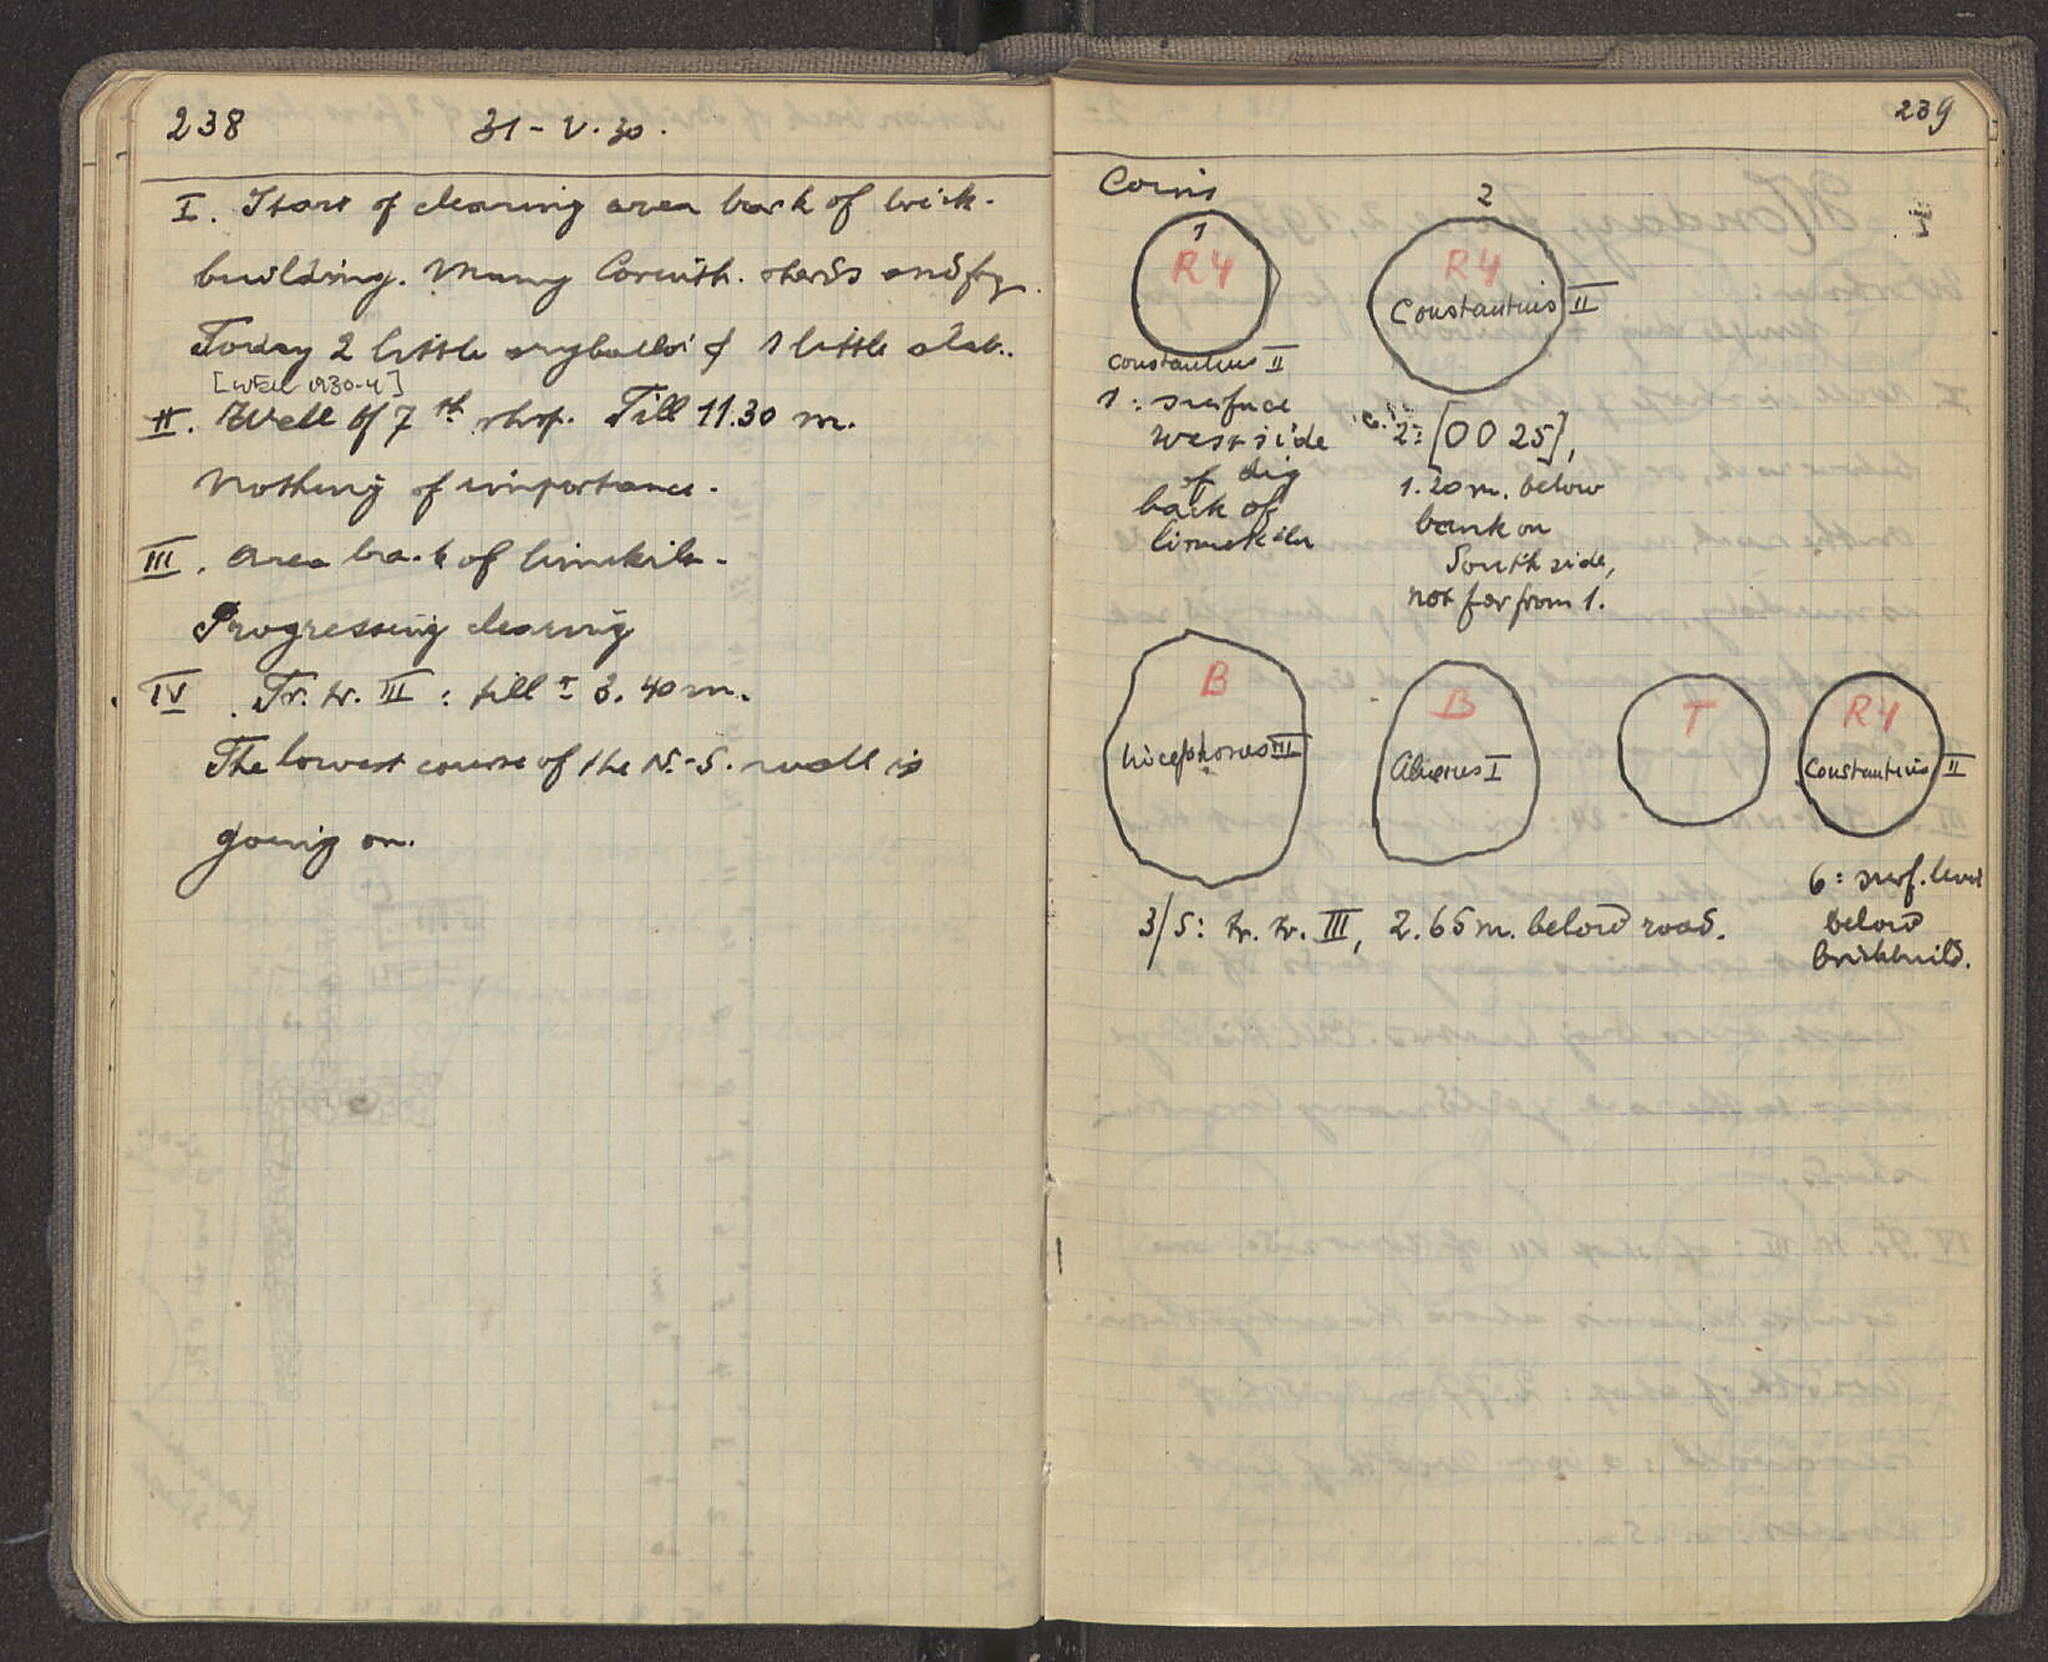 238
31 - V. 30.
I. Start of clearing area back of brick-
building. Many Corinth. sherds and frg.
Today 2 little aryballoi & 1 little
[WELL 1930-4]
II. Well of 7th shop. Till 11.30 m.
Nothing of importance.
III. Area back of limekiln.
Progressing clearing
IV. Tr. tr. III : till 3.40 m.
The lowest course of the N.-S. wall is
going on.
239
Coins
1
R4
Constantius II
2
R4
Constantius II
1: surface
west side
of dig
back of
limekiln
2: [0025],
1.20 m. below
bank on
South side,
not far from 1.
B
Nicephorus III
B
Alexius I
T
R4
Constantius II
3/5: tr. tr. III, 2.65 m. below road.
6: surf. level
below
brickbuild.